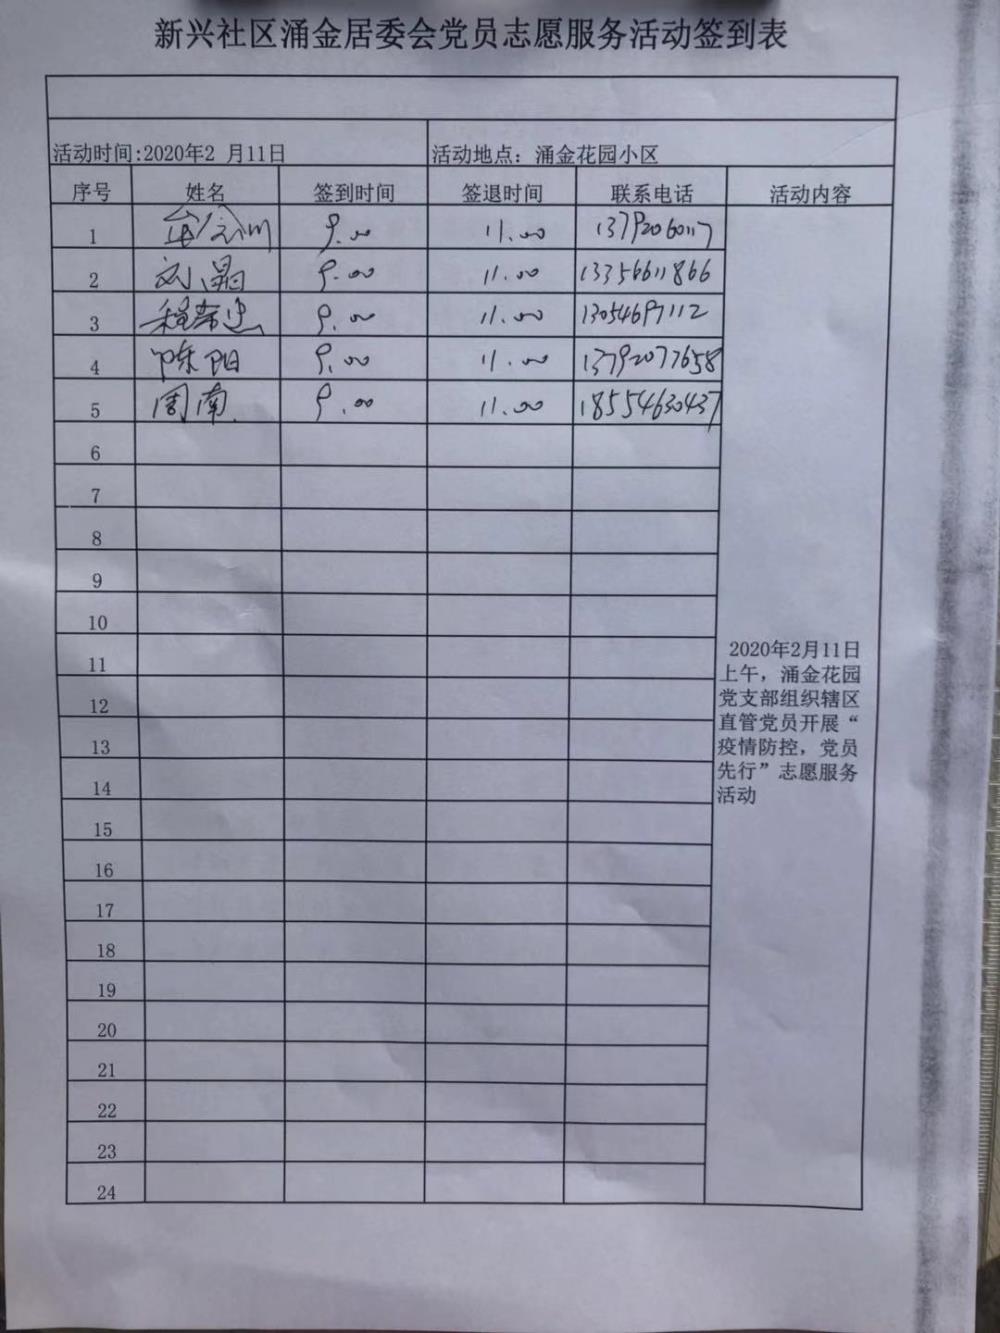 新兴社区涌金居委会党员志愿服务活动签到表
活动时间:2020年2 月11日 活动地点：涌金花园小区
序号 姓名 签到时间 签退时间 联系电话 活动内容
1 9.00 11.00 13792060117
2 刘晶 9.00 11.00 13356611866
3 程希忠 9.00 11.00 13054697112
4 陈阳 9.00 11.00 13792077658
5 周南 9.00 11.00 18554630437
6
7
8
9
10
11
12
13
14
15
16
17
18
19
20
21
22
23
24
2020年2月11日
上午，涌金花园
党支部组织辖区
直管党员开展“
疫情防控，党员
先行”志愿服务
活动